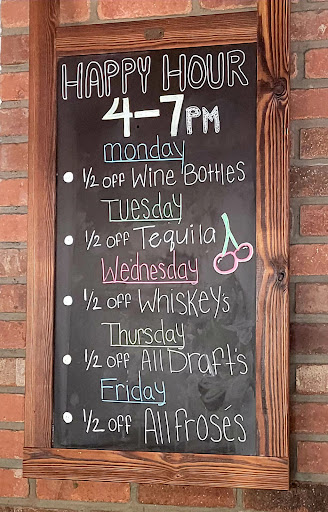 HAPPY HOUR
4-7PM
monday
1/2 OFF WINE BOTTLES
TUESday
1/2 OFF TEQUILA
Wednesday
1/2 OFF WHISKEY's
THURSday
1/2 OFF All DRAFT's
FRIday
1/2 OFF All frosés